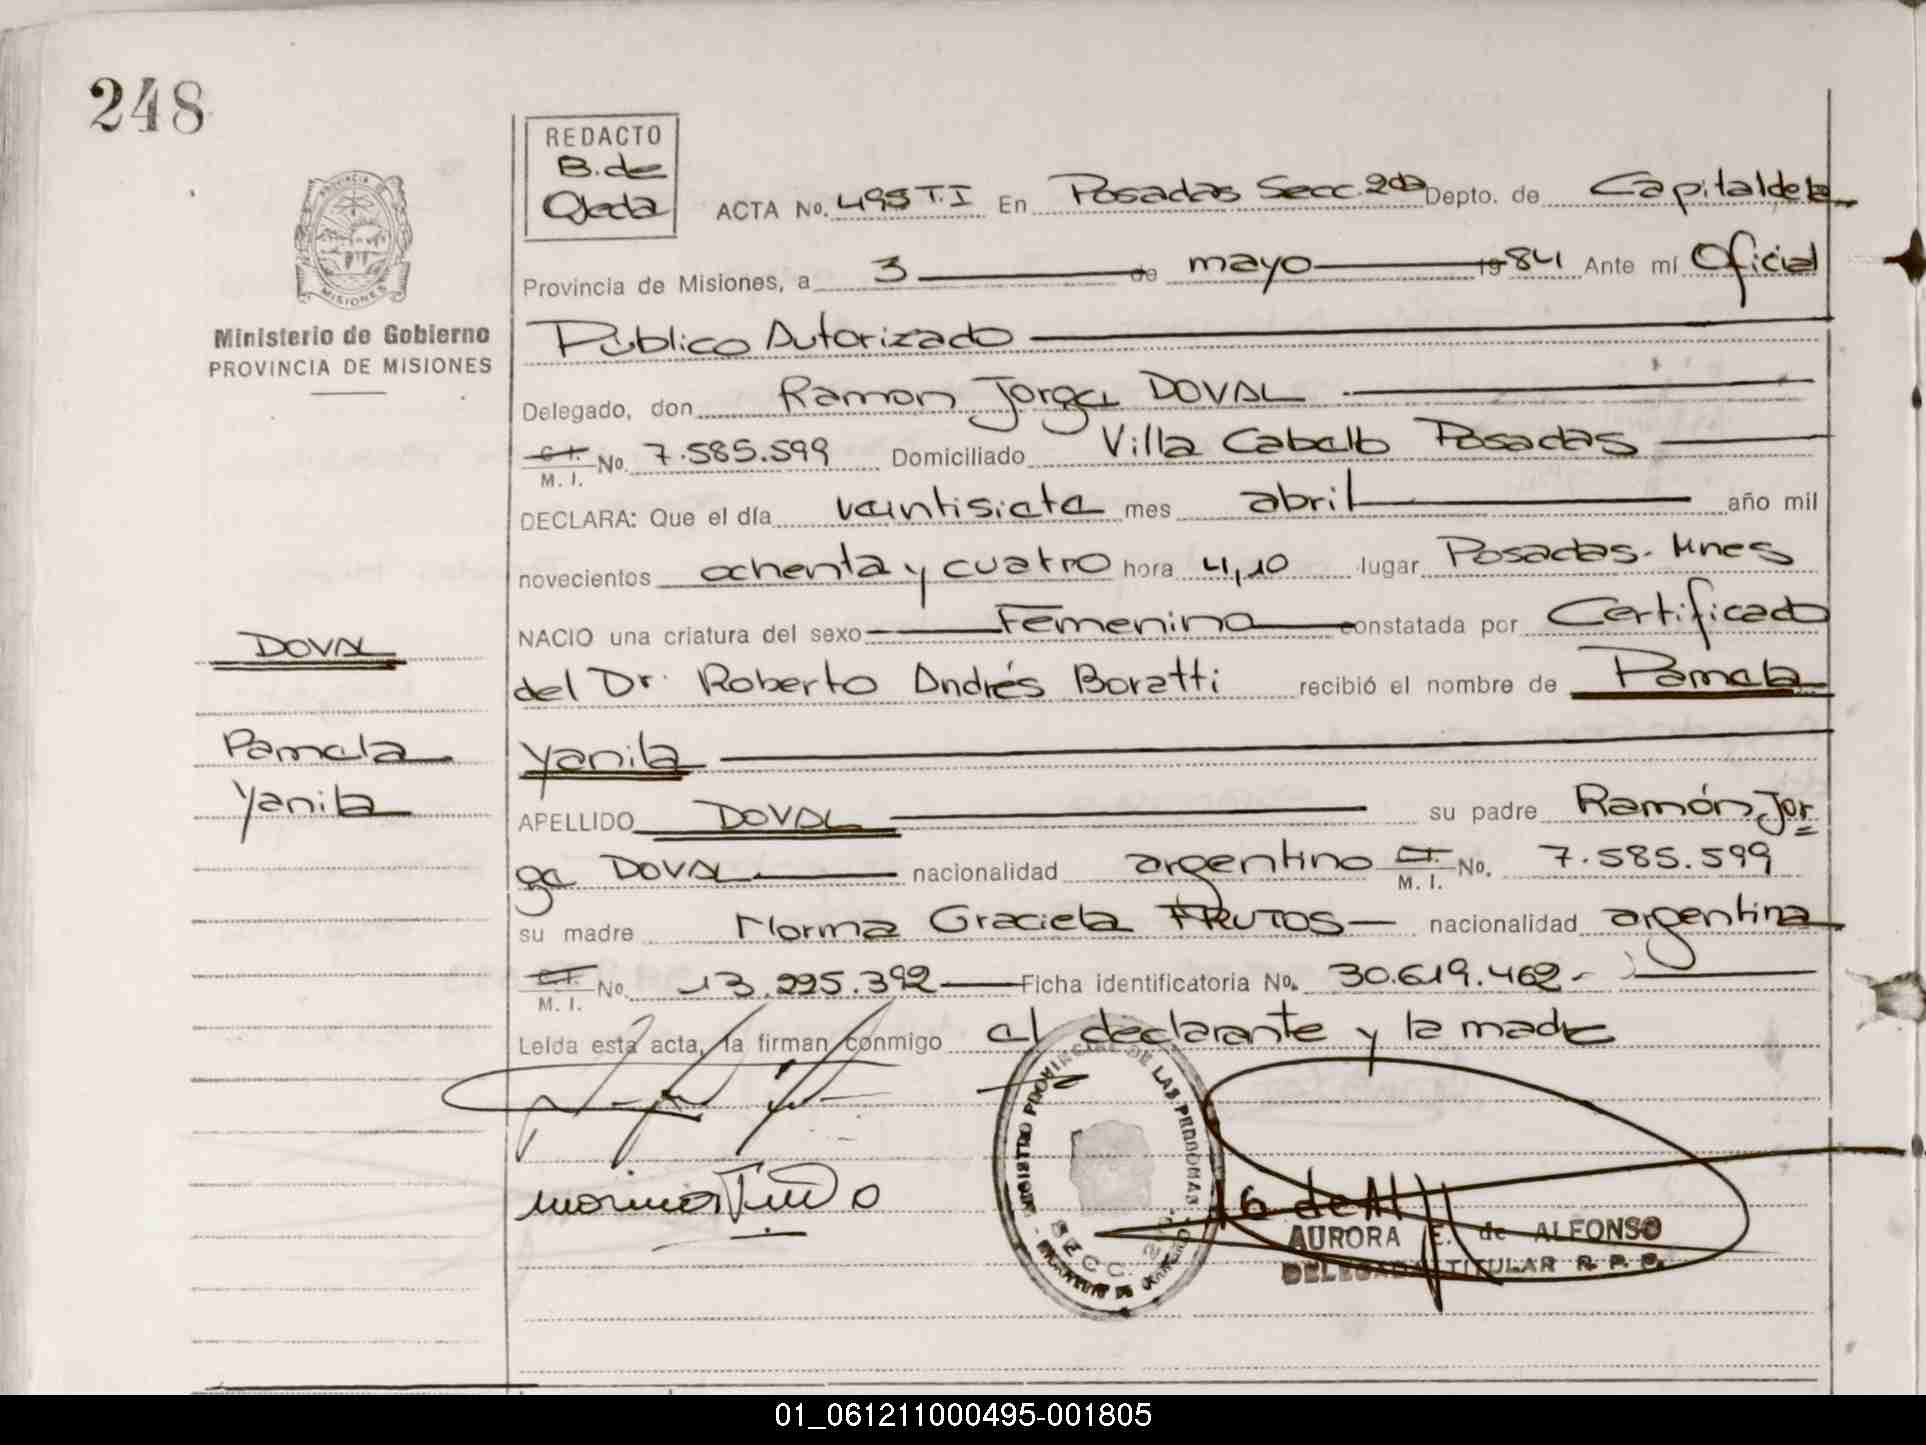 248
REDACTO
B. de
Ojeda
ACTA No. 495 T.I En Posadas Secc. 2da Depto. de Capital de la
Provincia de Misiones, a 3 de mayo 1984 Ante mí Oficial
PROVINCIA
MISIONES
Ministerio de Gobierno
PROVINCIA DE MISIONES
Público Autorizado
Delegado, don Ramon Jorge DOVAL
C. I. M. I. No. 7.585.599 Domiciliado Villa Cabello Posadas
DECLARA: Que el día veintisiete mes abril año mil
novecientos ochenta y cuatro hora 4,10 lugar Posadas. Mnes
NACIO una criatura del sexo Femenino constatada por Certificado
del Dr. Roberto Andrés Boratti recibió el nombre de Pamela
Yanila
DOVAL
Pamela
Yanila
APELLIDO DOVAL su padre Ramón Jor
ge DOVAL nacionalidad argentino C.I. M. I. No. 7.585.599
su madre Norma Graciela FRUTOS nacionalidad argentina
C.I. M. I. No. 13.225.392 Ficha identificatoria No. 30.619.462-
Leída esta acta, la firman conmigo el declarante y la madre
REGISTRO PROVINCIAL DE LAS PERSONAS
SECC. 2da
AURORA E. de ALFONSO
DELEGADA TITULAR R. P. P.
01_061211000495-001805